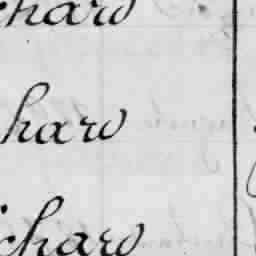 chard
hard
chard